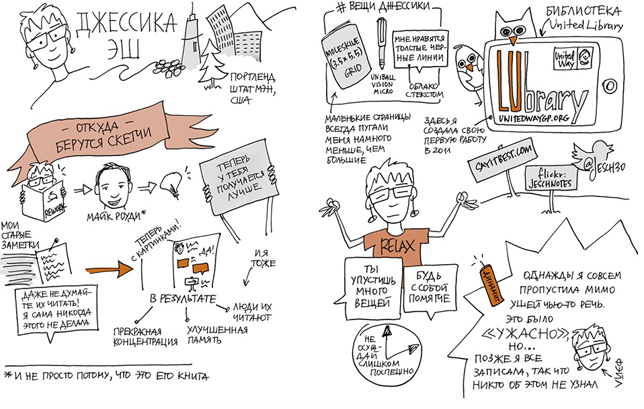 ДЖЕССИКА
ЭШ
ПОРТЛЕНД,
ШТАТ МЭН,
США
- ОТКУДА -
БЕРУТСЯ СКЕТЧИ
REWORK
МАЙК РОУДИ*
ТЕПЕРЬ
У ТЕБЯ
ПОЛУЧАЕТСЯ
ЛУЧШЕ
МОИ
СТАРЫЕ
ЗАМЕТКИ
ДАЖЕ НЕ ДУМАЙ-
ТЕ ИХ ЧИТАТЬ!
Я САМА НИКОГДА
ЭТОГО НЕ ДЕЛАЛА
ТЕПЕРЬ
С КАРТИНКАМИ!
ДА!
В РЕЗУЛЬТАТЕ
И Я
ТОЖЕ
ЛЮДИ ИХ
ЧИТАЮТ
ПРЕКРАСНАЯ
КОНЦЕНТРАЦИЯ
УЛУЧШЕННАЯ
ПАМЯТЬ
* И НЕ ПРОСТО ПОТОМУ, ЧТО ЭТО ЕГО КНИГА
# ВЕЩИ ДЖЕССИКИ
MOLESKINE
(3,5 x 5,5)
GRID
UNIBALL
VISION
MICRO
МНЕ НРАВЯТСЯ
ТОЛСТЫЕ ЧЕР-
НЫЕ ЛИНИИ
ОБЛАКО
С ТЕКСТОМ
МАЛЕНЬКИЕ СТРАНИЦЫ
ВСЕГДА ПУГАЛИ
МЕНЯ НАМНОГО
МЕНЬШЕ, ЧЕМ
БОЛЬШИЕ
БИБЛИОТЕКА
United Library
United
Way
LUbrary
UNITEDWAYGP.ORG
ЗДЕСЬ Я
СОЗДАЛА СВОЮ
ПЕРВУЮ РАБОТУ
В 2011
SAYITBEST.COM
@JESCH30
flickr:
JESCHNOTES
RELAX
ТЫ
УПУСТИШЬ
МНОГО
ВЕЩЕЙ
БУДЬ
С СОБОЙ
ПОМЯГЧЕ
НЕ
ОСУЖ-
ДАЙ
СЛИШКОМ
ПОСПЕШНО
ДИНАМИТ
ОДНАЖДЫ Я СОВСЕМ
ПРОПУСТИЛА МИМО
УШЕЙ ЧЬЮ-ТО РЕЧЬ.
ЭТО БЫЛО
«УЖАСНО»,
НО...
ПОЗЖЕ Я ВСЕ
ЗАПИСАЛА, ТАК ЧТО
НИКТО ОБ ЭТОМ НЕ УЗНАЛ